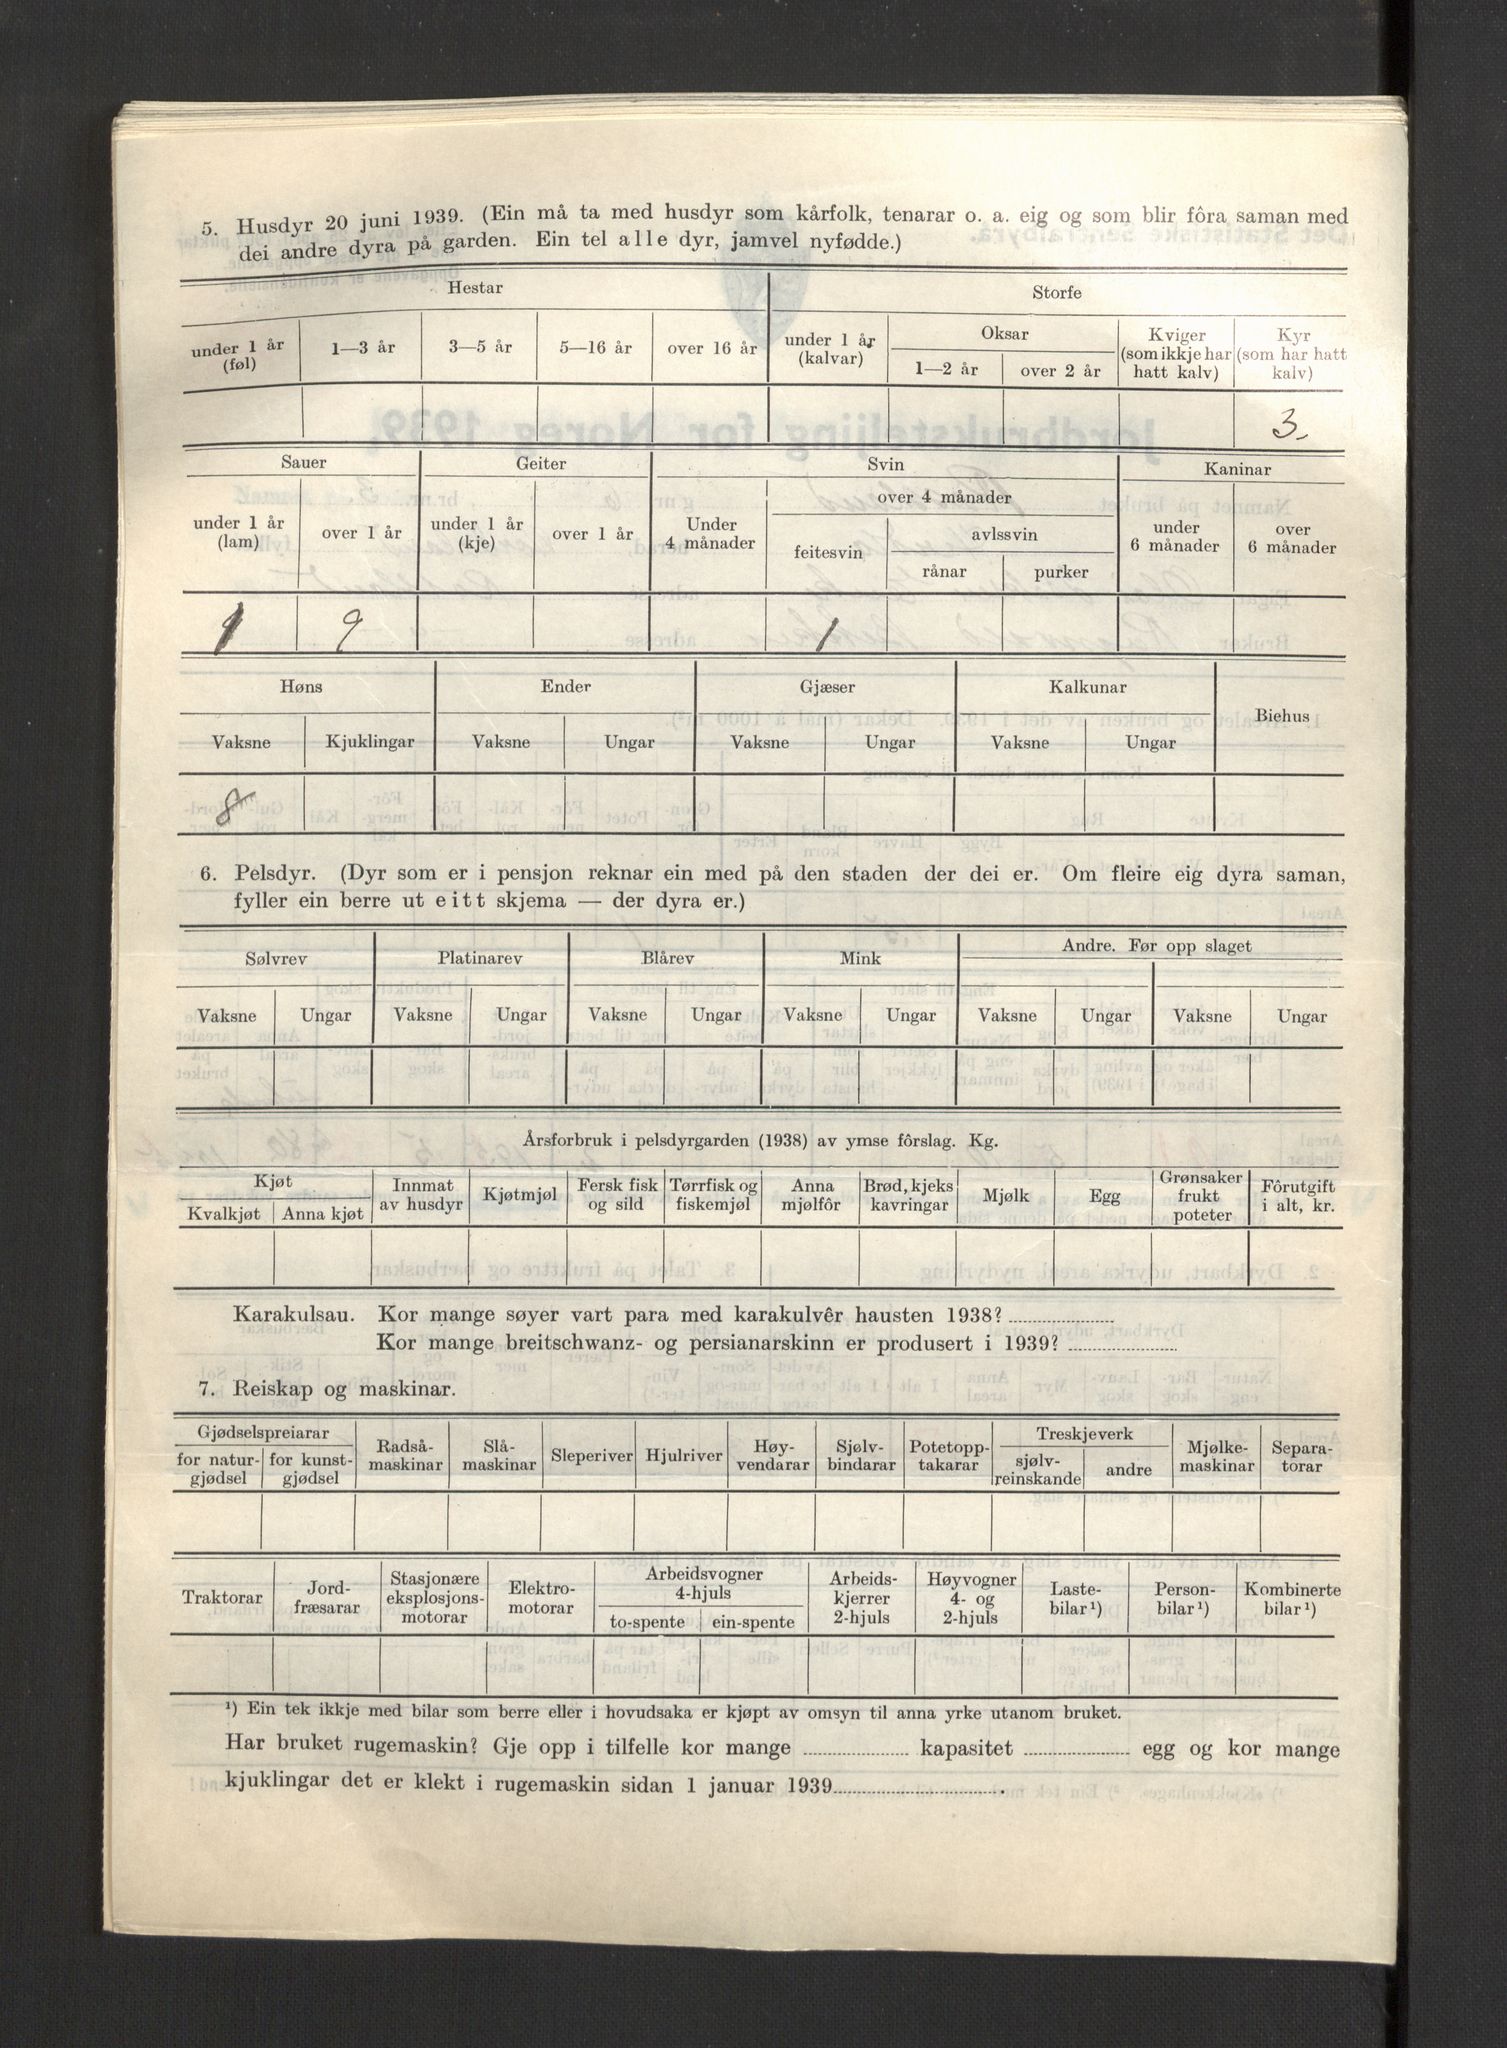 5. Husdyr 20 juni 1939. (Ein må ta med husdyr som kårfolk, tenarar o. a. eig og som blir fôra saman med
dei andre dyra på garden. Ein tel alle dyr, jamvel nyfødde.)
Hestar Storfe
under 1 år (føl) 1—3 år 3—5 år 5—16 år over 16 år under 1 år (kalvar) Oksar 1—2 år over 2 år Kviger (som ikkje har hatt kalv) Kyr (som har hatt kalv)
3.
Sauer Geiter Svin Kaninar
under 1 år (lam) over 1 år under 1 år (kje) over 1 år Under 4 månader over 4 månader feitesvin avlssvin rånar purker under 6 månader over 6 månader
9 1
Høns Ender Gjæser Kalkunar Biehus
Vaksne Kjuklingar Vaksne Ungar Vaksne Ungar Vaksne Ungar
8
6. Pelsdyr. (Dyr som er i pensjon reknar ein med på den staden der dei er. Om fleire eig dyra saman,
fyller ein berre ut eitt skjema — der dyra er.)
Sølvrev Platinarev Blårev Mink Andre. Før opp slaget
Vaksne Ungar Vaksne Ungar Vaksne Ungar Vaksne Ungar Vaksne Ungar Vaksne Ungar
Årsforbruk i pelsdyrgarden (1938) av ymse fôrslag. Kg.
Kjøt Kvalkjøt Anna kjøt Innmat av husdyr Kjøtmjøl Fersk fisk og sild Tørrfisk og fiskemjøl Anna mjølfôr Brød, kjeks kavringar Mjølk Egg Grønsaker frukt poteter Fôrutgift i alt, kr.
Karakulsau. Kor mange søyer vart para med karakulvêr hausten 1938?
Kor mange breitschwanz- og persianarskinn er produsert i 1939?
7. Reiskap og maskinar.
Gjødselspreiarar for natur-gjødsel for kunst-gjødsel Radså-maskinar Slå-maskinar Sleperiver Hjulriver Høy-vendarar Sjølv-bindarar Potetopp-takarar Treskjeverk sjølv-reinskande andre Mjølke-maskinar Separa-torar
Traktorar Jord-fræsarar Stasjonære eksplosjons-motorar Elektro-motorar Arbeidsvogner 4-hjuls to-spente ein-spente Arbeids-kjerrer 2-hjuls Høyvogner 4- og 2-hjuls Laste-bilar¹) Person-bilar¹) Kombinerte bilar¹)
¹) Ein tek ikkje med bilar som berre eller i hovudsaka er kjøpt av omsyn til anna yrke utanom bruket.
Har bruket rugemaskin? Gje opp i tilfelle kor mange kapasitet egg og kor mange
kjuklingar det er klekt i rugemaskin sidan 1 januar 1939 .